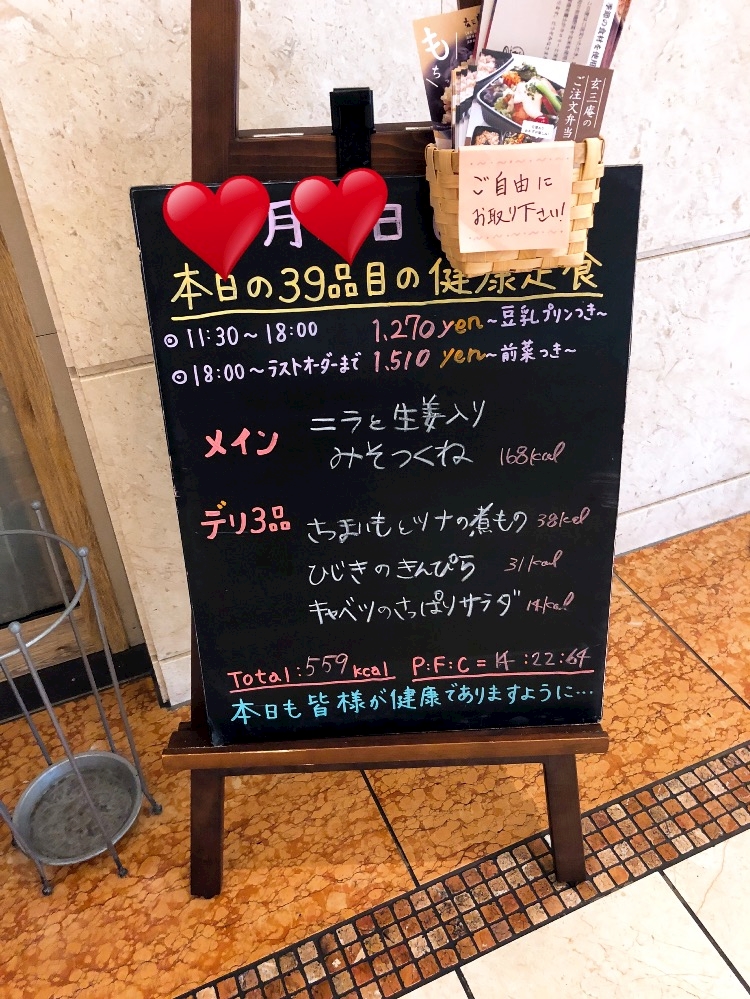 もち
季節の食材を使用
玄三庵の
ご注文弁当
ご自由に
お取り下さい!
月 日
本日の39品目の健康定食
◎11:30～18:00 1,270 yen～豆乳プリンつき～
◎18:00～ラストオーダーまで 1,510 yen～前菜つき～
メイン
ニラと生姜入り
みそつくね 168kcal
デリ3品
さつまいもとツナの煮もの 38kcal
ひじきのきんぴら 31kcal
キャベツのさっぱりサラダ 14kcal
Total:559kcal P:F:C=14:22:64
本日も皆様が健康でありますように…